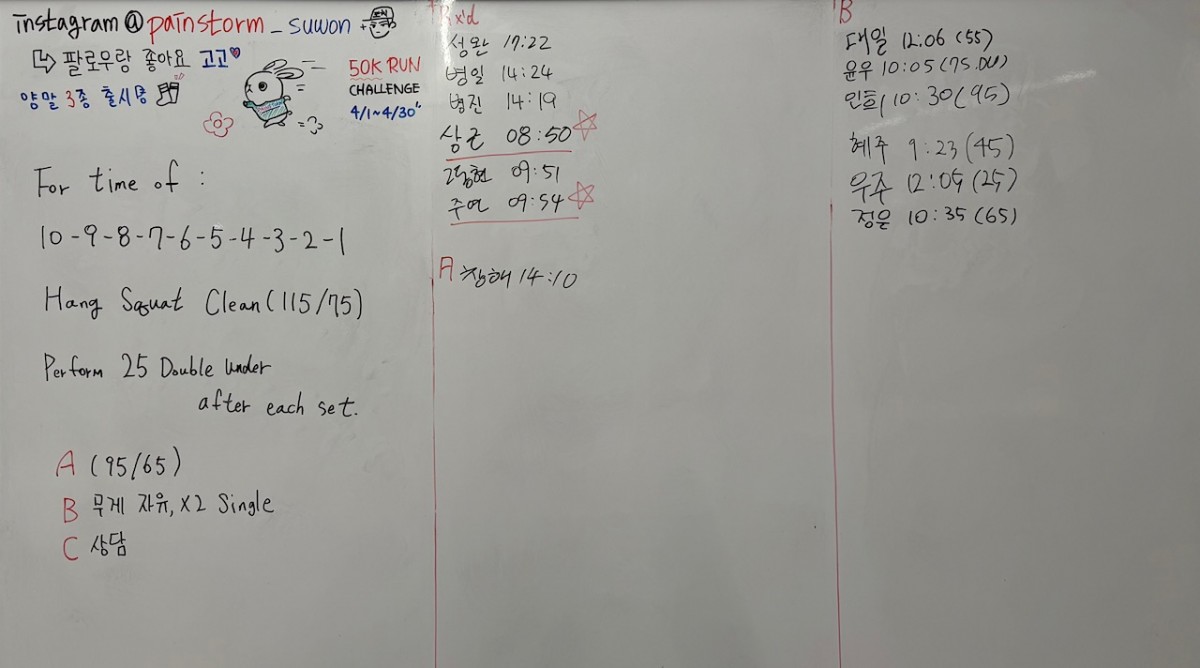 instagram@painstorm_suwon +
팔로우랑 좋아요 고고
양말 3종 출시중
50K RUN
CHALLENGE
4/1~4/30
For time of :
10-9-8-7-6-5-4-3-2-1
Hang Squat Clean (115/75)
Perform 25 Double under
after each set.
A (95/65)
B 무게 자유, x2 Single
C 상담
Rx'd
성완 17:22
병일 14:24
병진 14:19
상근 08:50
09:51
주연 09:54
A 창해 14:10
B
대일 12:06 (55)
윤우 10:05 (75.DU)
민희 10:30 (95)
혜주 9:23 (45)
우주 12:05 (25)
정은 10:35 (65)